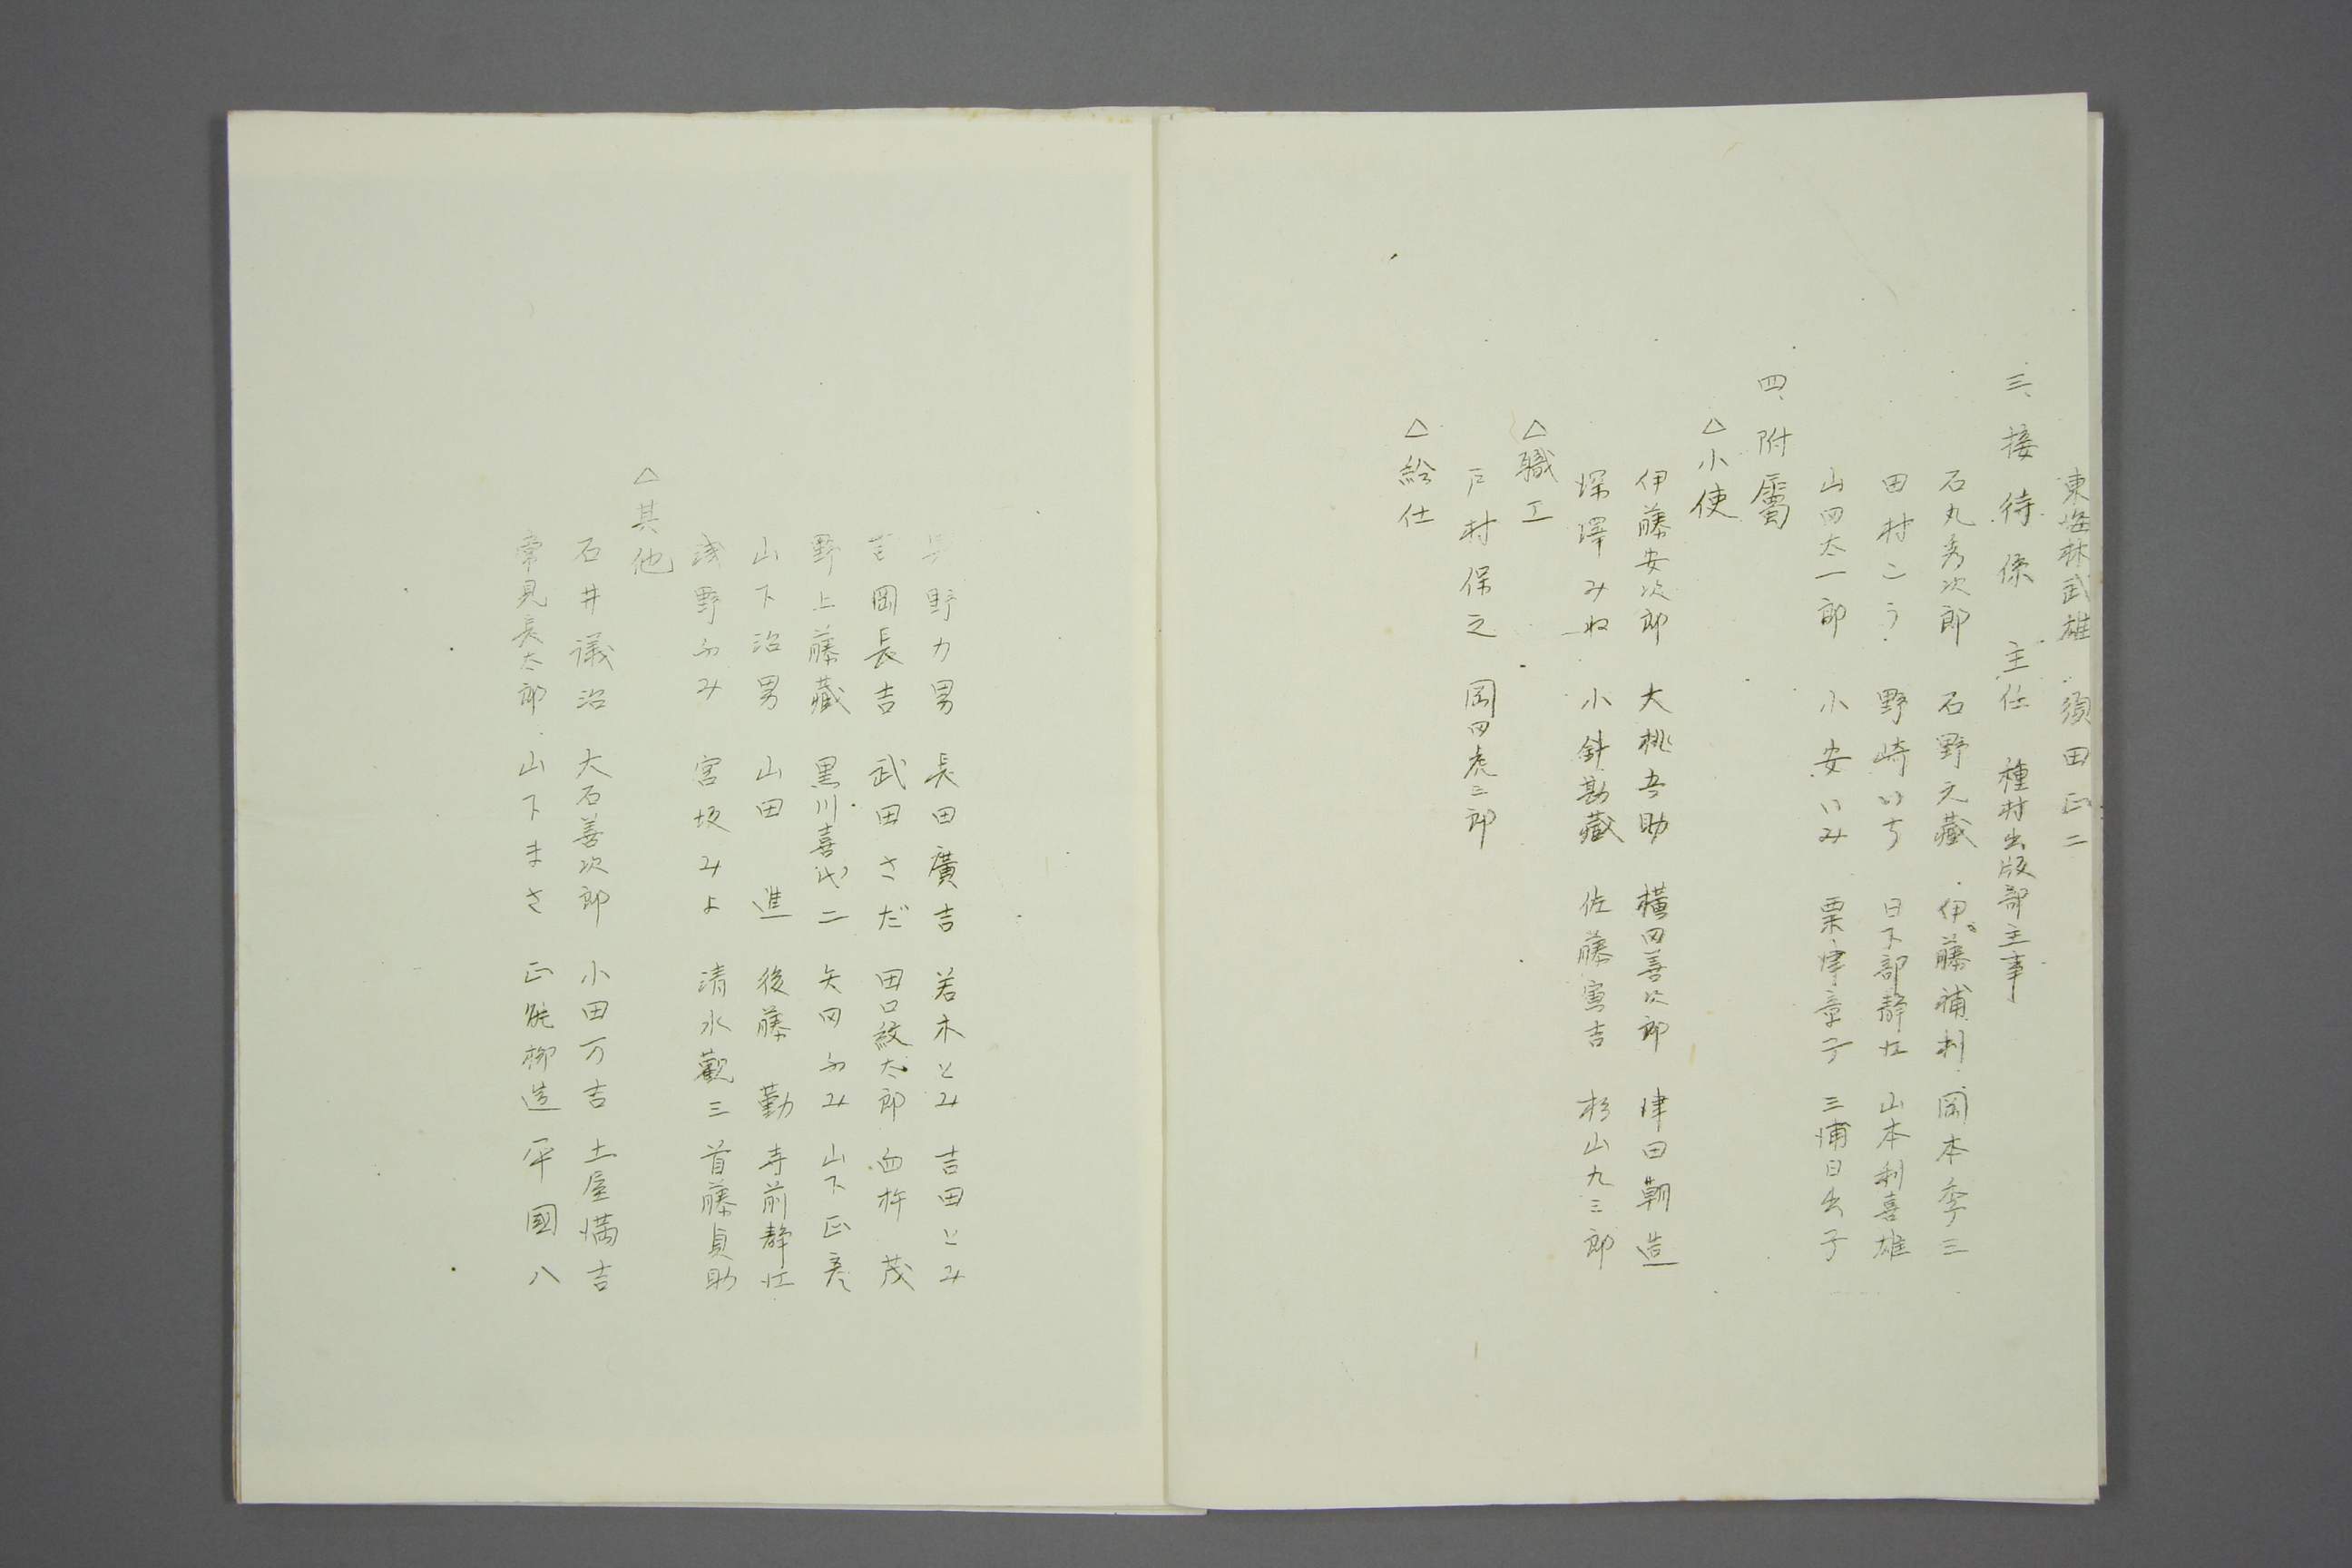 東海林武雄 須田正二
三、接待係 主任 種村出版部主事
石丸秀次郎 石野元藏 伊藤補利 岡本季三
田村こう 野崎いち 日下部静江 山本利喜雄
山田太一郎 小安いみ 栗津章子 三浦日出子
四、附屬
△小使
伊藤安次郎 大桃吾助 橫田善次郎 津田朝造
深澤みね 小針勘藏 佐藤寅吉 杉山九三郎
△職工
戸村保之 岡田虎三郎
△給仕
野力男 長田廣吉 若木とみ 吉田とみ
岡長吉 武田さだ 田口紋太郎 茂
野上藤藏 黒川喜代二 矢田ふみ 山下正彦
山下治男 山田進 後藤勤 寺前静江
浅野ふみ 宮坂みよ 清水觀三 首藤貞助
△其他
石井議治 大石善次郎 小田万吉 土屋満吉
常見長太郎 山下まさ 正能柳造 平國八